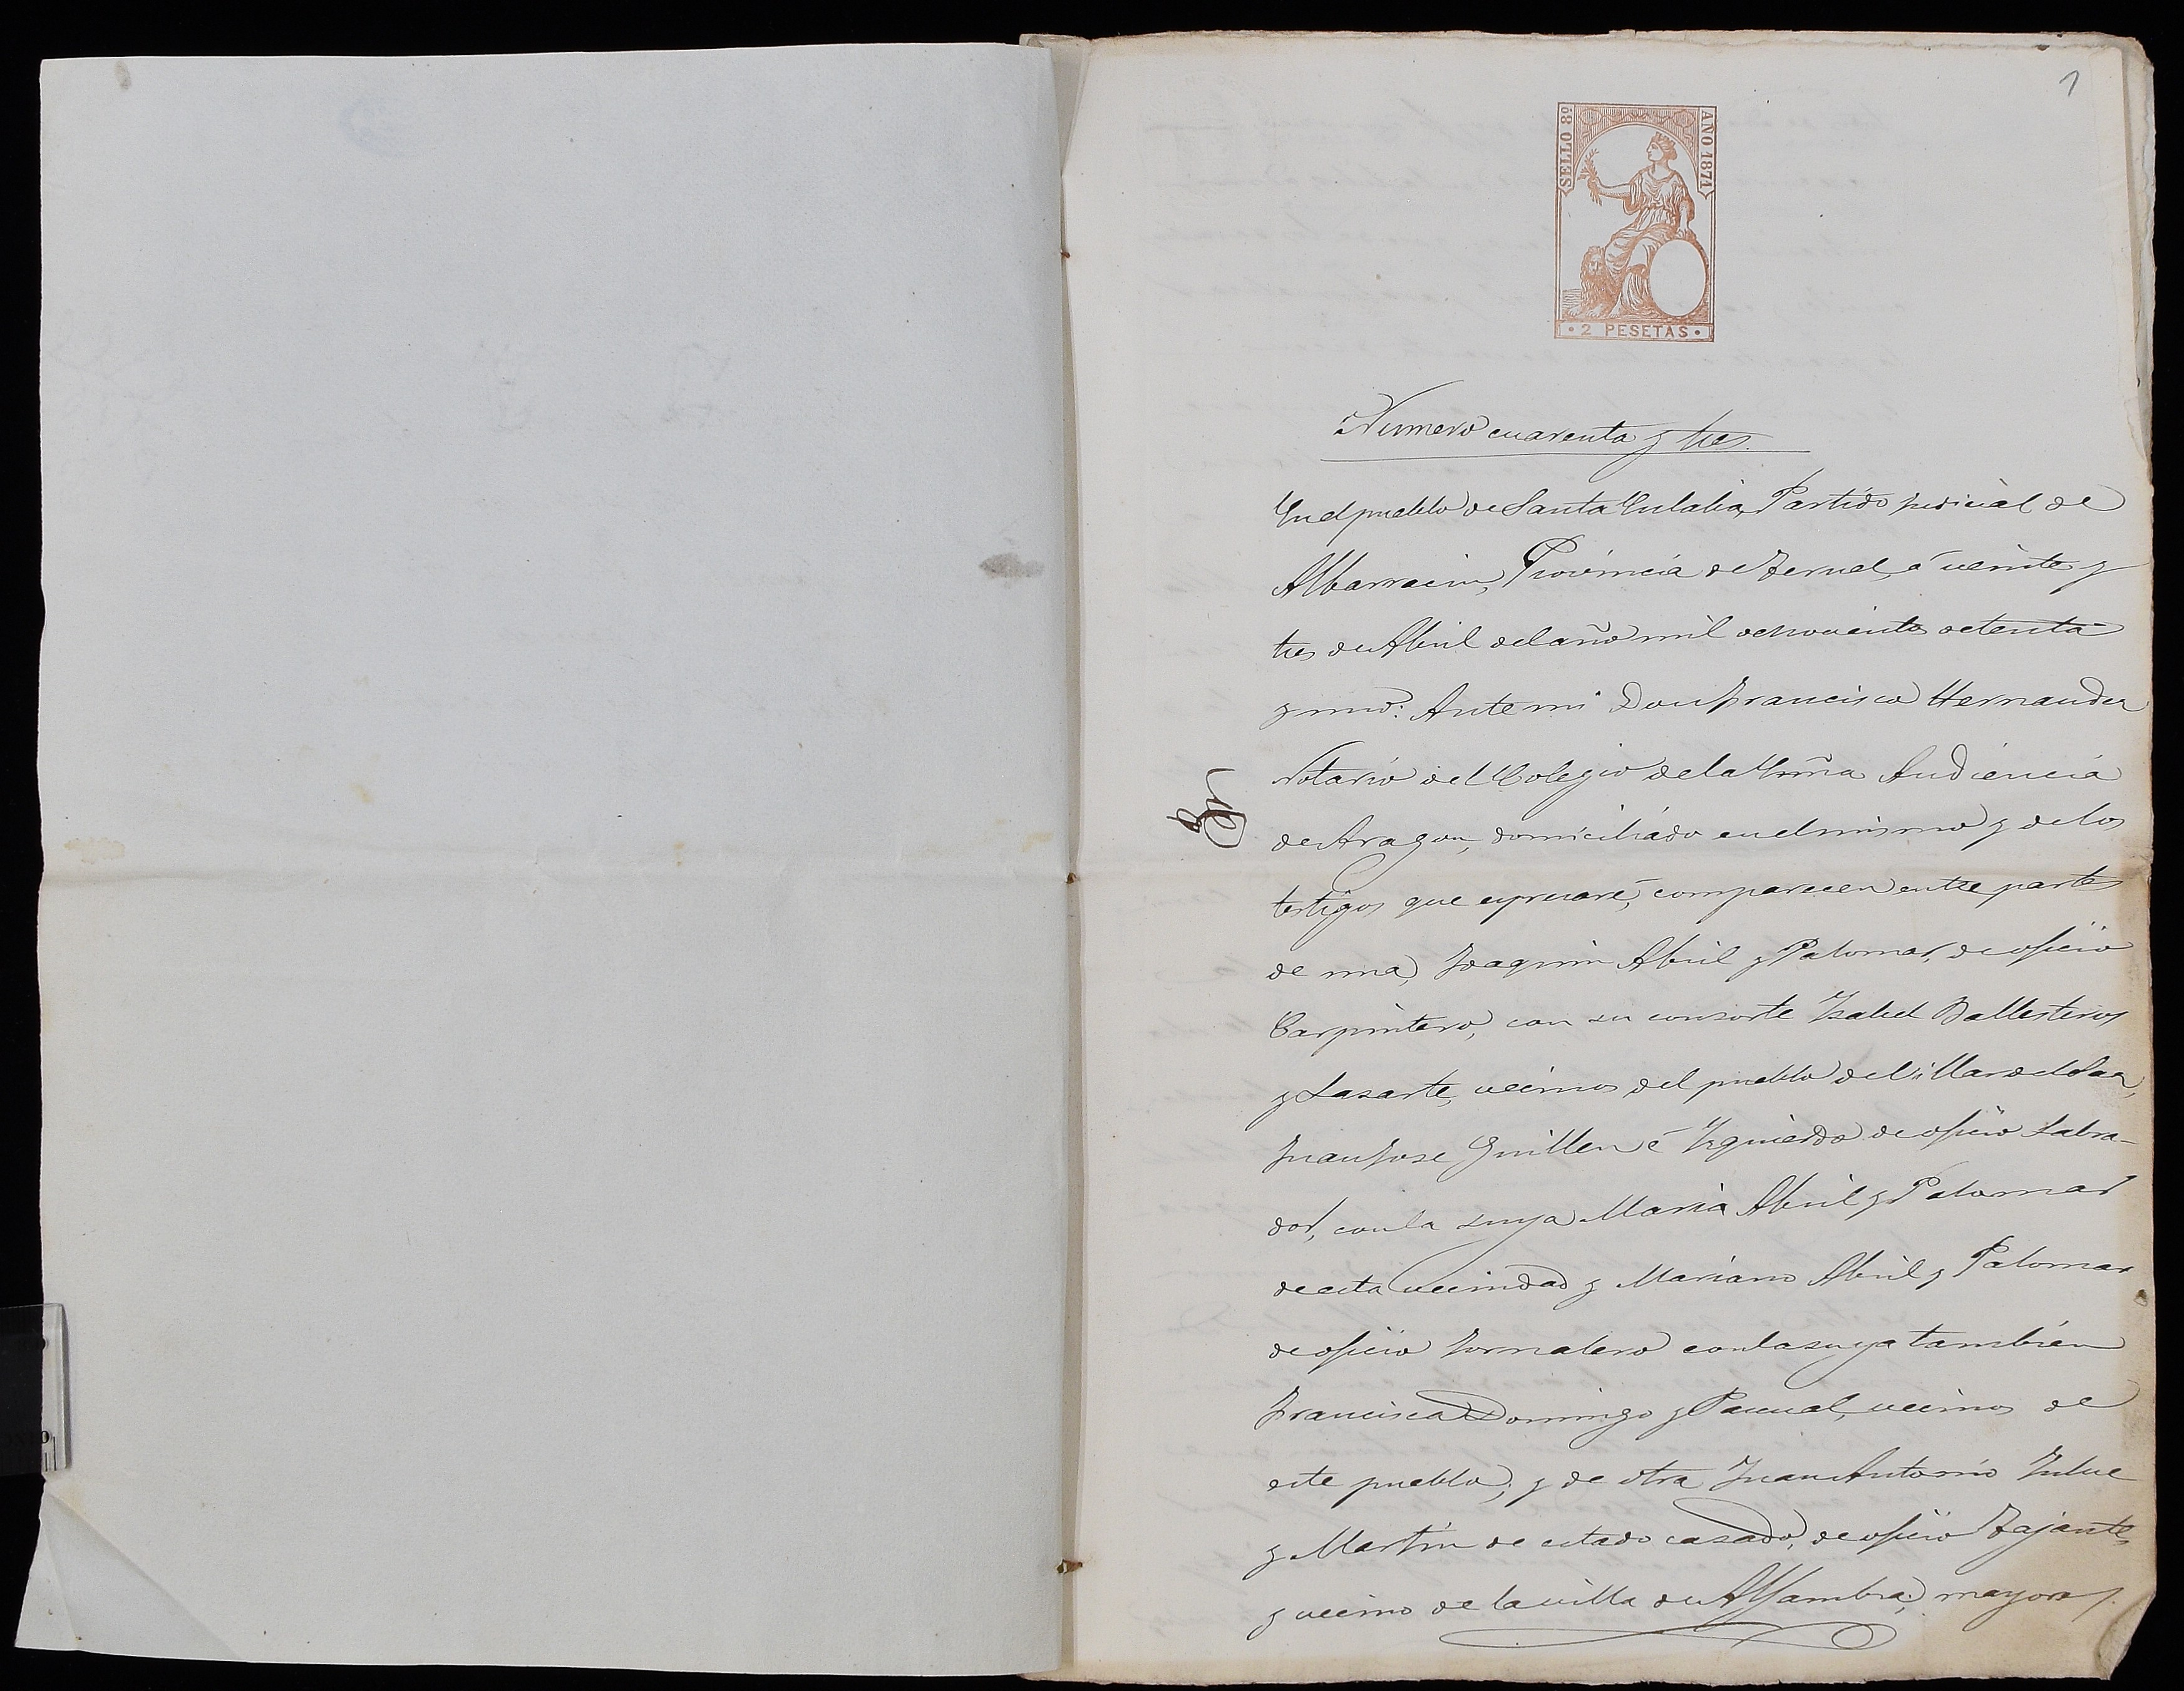 1
SELLO 8º
AÑO 1871
2 PESETAS
Numero cuarenta y tres.
En el pueblo de Santa Eulalia, Partido judicial de
Albarracin, Provincia de Teruel, á veinte y
tres de Abril del año mil ochocientos setenta
y uno: Ante mi Don Francisco Hernandez
Notario del Colegio de la Yltma Audiencia
de Aragon, domiciliado en el mismo y de los
testigos que espresaré, comparecen entre partes
de una, Joaquin Abril y Palomar, de oficio
Carpintero, con su consorte Ysabel Ballesteros
y Lasarte, vecinos del pueblo de Villar del Saz,
Juan Jose Guillen é Yzquierdo de oficio Labra-
dor, con la suya Maria Abril y Palomar
de esta vecindad y Mariano Abril y Palomar
de oficio Jornalero con la suya tambien
Francisca Domingo y Pascual, vecinos de
este pueblo; y de otra Juan Antonio
y Martin de estado casado, de oficio Tajante,
y vecino de la villa de Alfambra, mayores